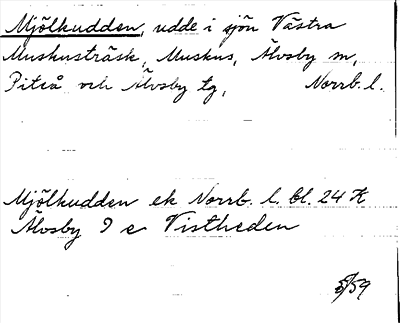 Mjölkudden, udde i sjön Västra
Muskusträsk, Muskus, Älvsby sn,
Piteå och Älvsby tg, Norrb. l.
Mjölkudden ek Norrb. l. bl. 24 K
Älvsby 9 e Vistheden
5/59